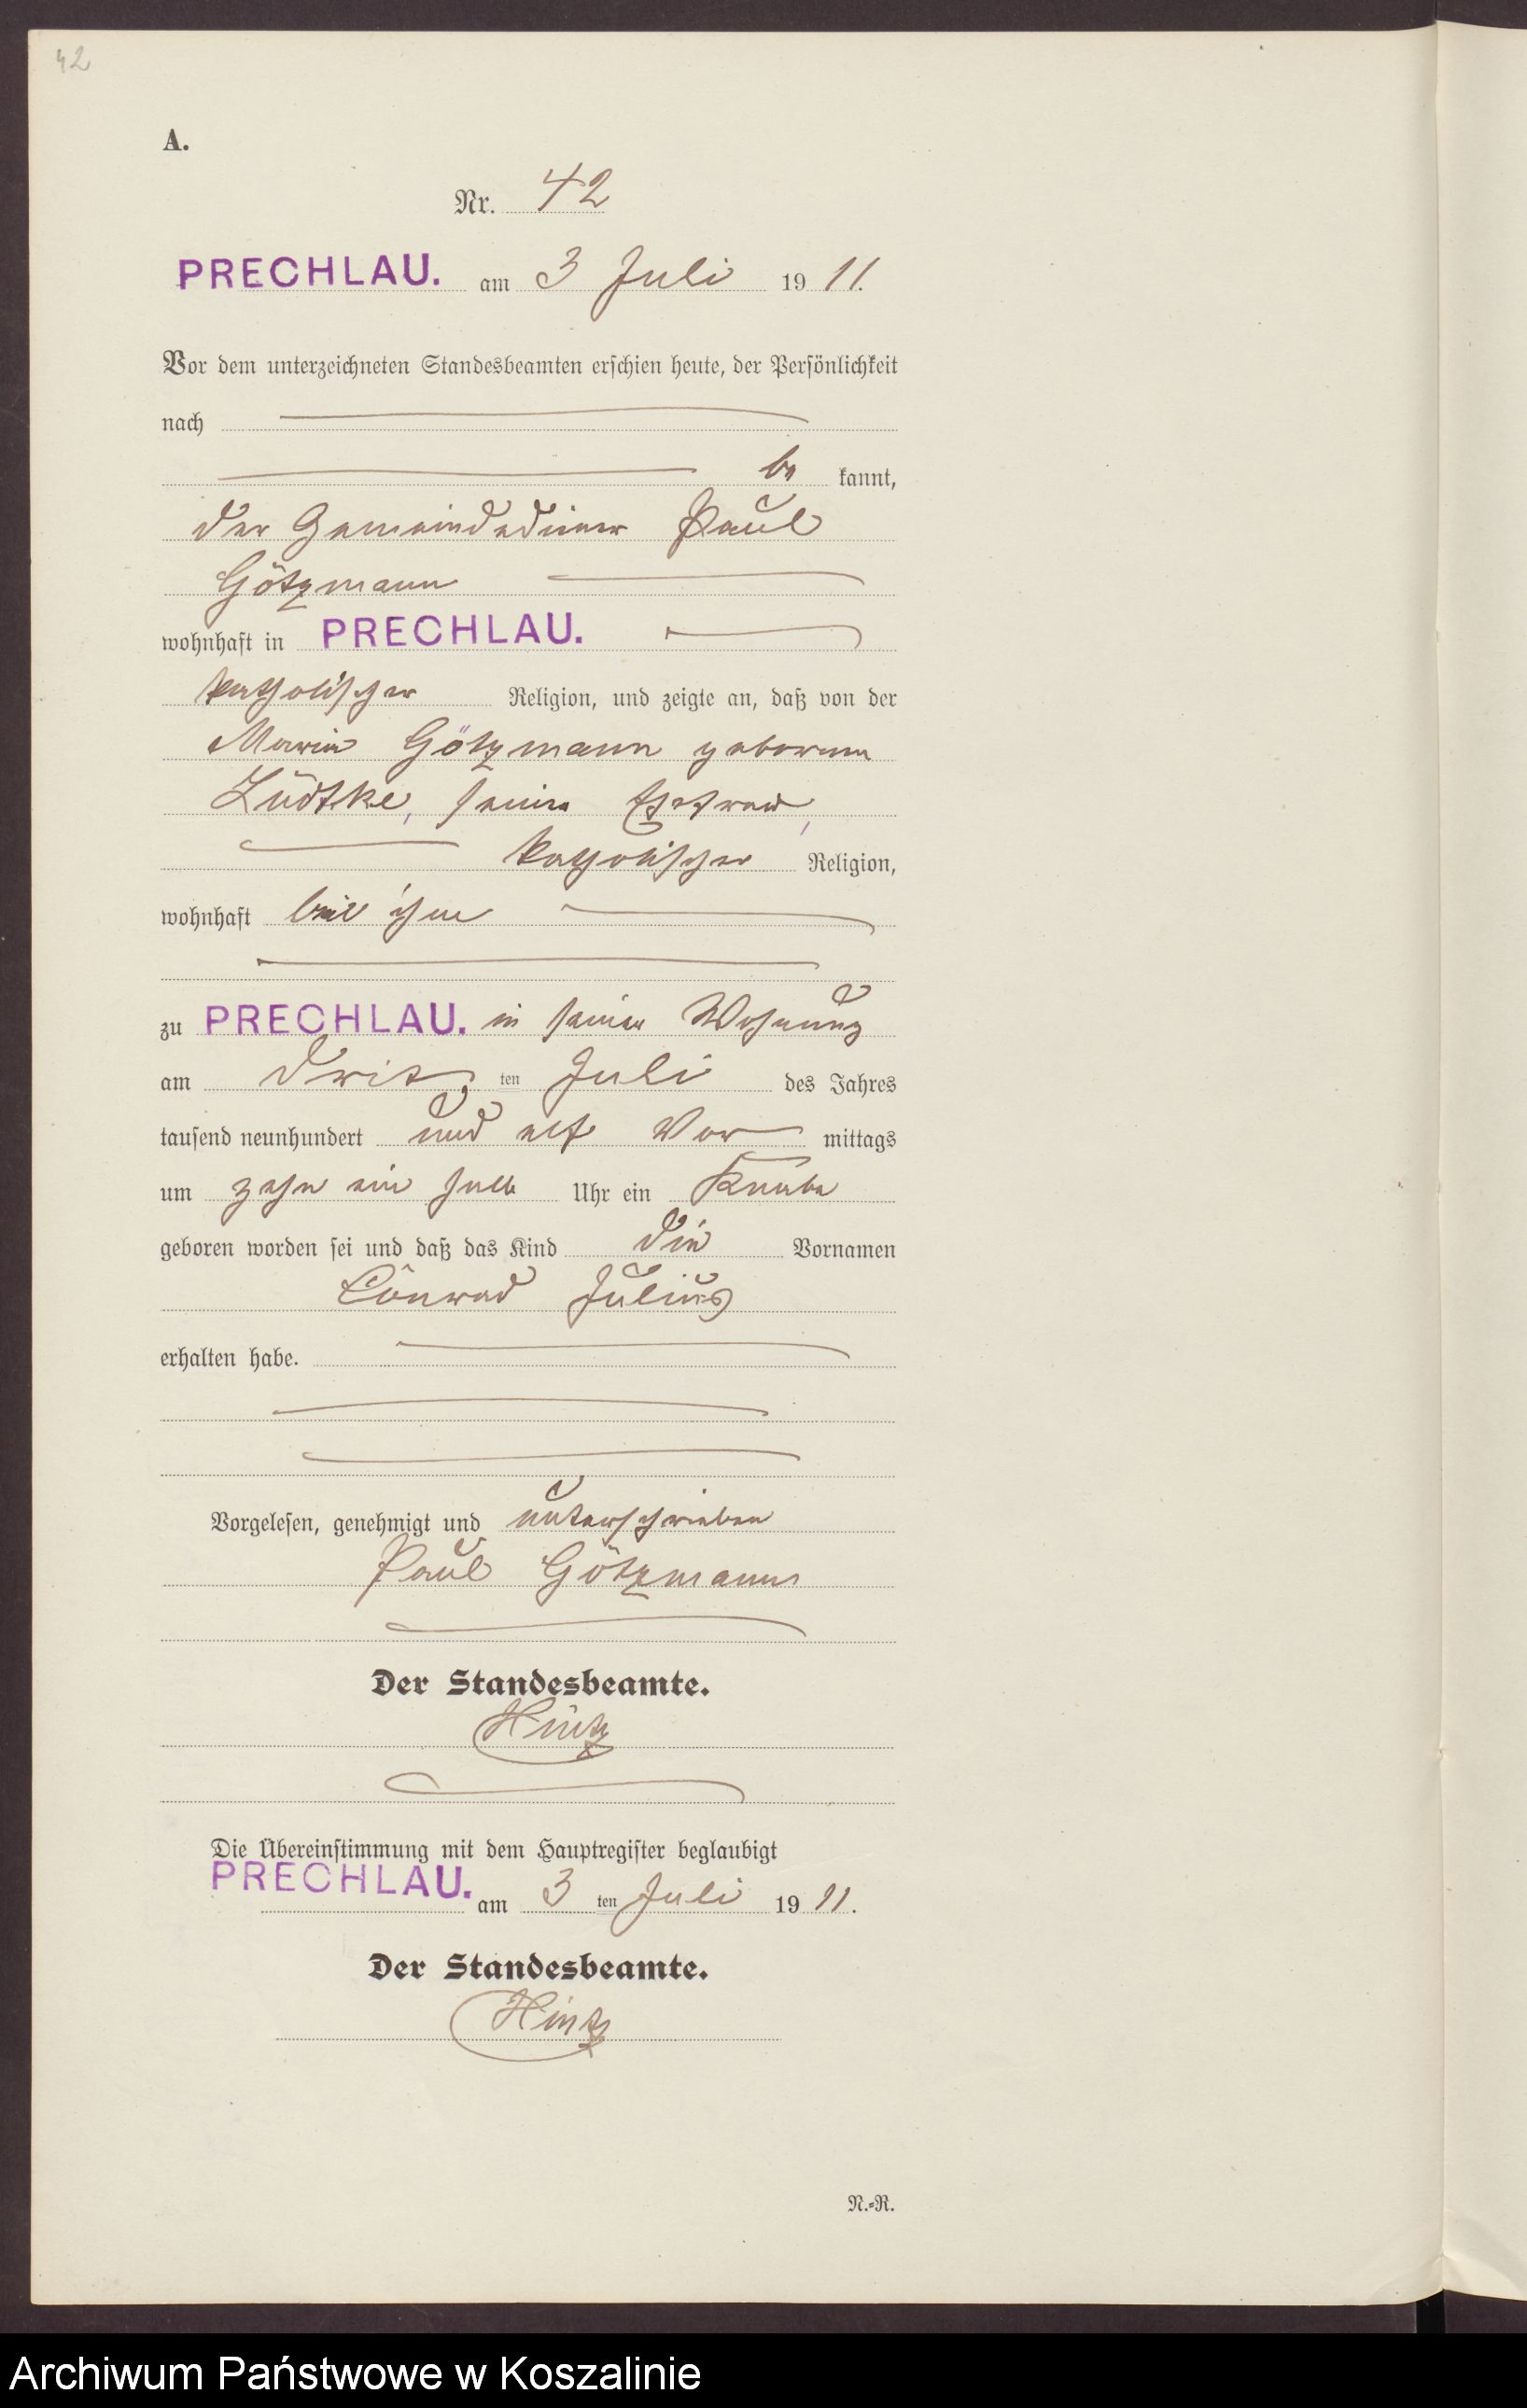 42
A.
Nr. 42
PRECHLAU. am 3 Juli 1911.
Vor dem unterzeichneten Standesbeamten erschien heute, der Persönlichkeit
nach
be kannt,
der Gemeindediener Paul
Götzmann
wohnhaft in PRECHLAU.
katholischer Religion, und zeigte an, daß von der
Maria Götzmann geborenen
Lüdtke, seiner Ehefrau,
katholischer Religion,
wohnhaft bei ihm
zu PRECHLAU. in seiner Wohnung
am dritten Juli des Jahres
tausend neunhundert und elf Vormittags
um zehn ein halb Uhr ein Knabe
geboren worden sei und daß das Kind die Vornamen
Conrad Julius
erhalten habe.
Vorgelesen, genehmigt und unterschrieben
Paul Götzmann
Der Standesbeamte.
Hintz
Die Übereinstimmung mit dem Hauptregister beglaubigt
PRECHLAU. am 3 ten Juli 1911.
Der Standesbeamte.
Hintz
N.-R.
Archiwum Państwowe w Koszalinie